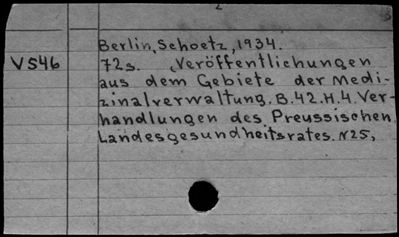 2
Berlin, Schoetz, 1934.
V546 72s. Veröffentlichungen
aus dem Gebiete der Medi-
zinalverwaltung. B.42.H.4. Ver-
handlungen des Preussischen
Landesgesundheitsrates. N25,